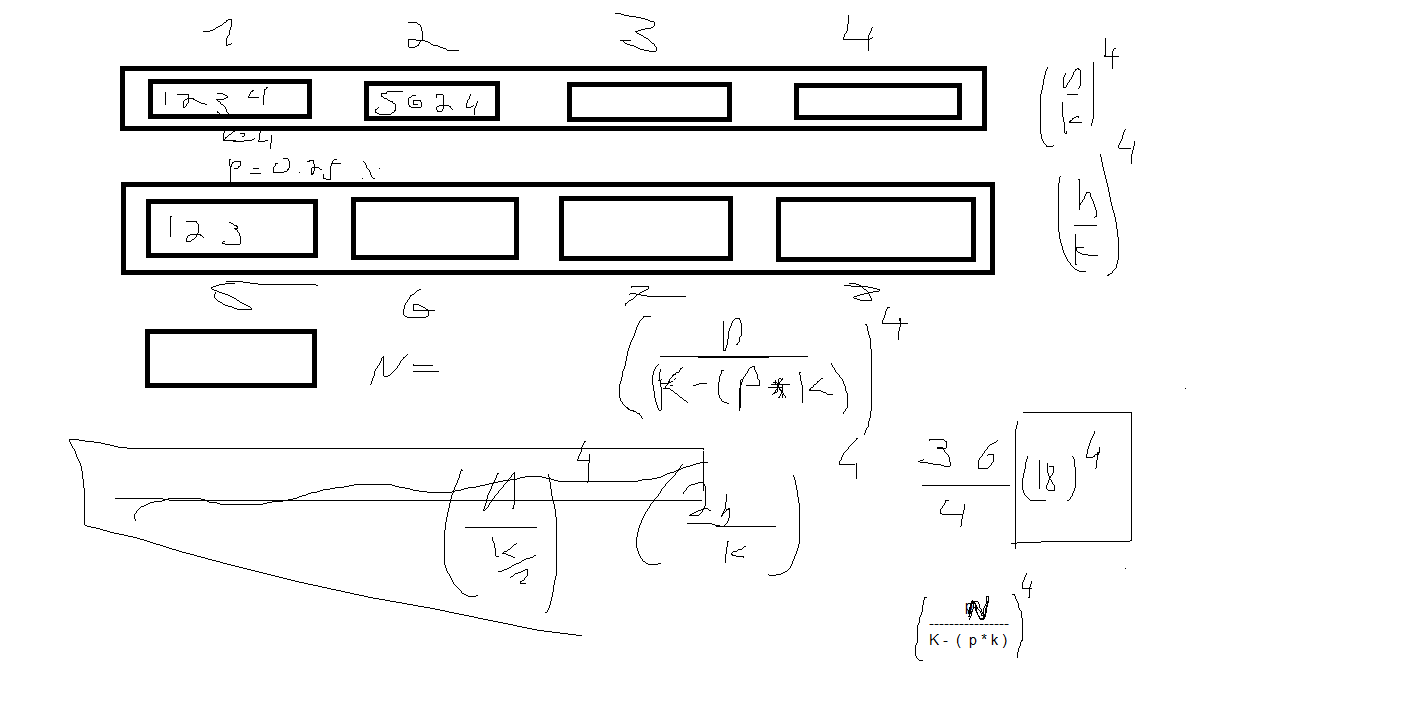 1 2 3 4
1 2 3 4 5 6 2 4 (n/k)^4
k=4
p = 0.25
1 2 3 (n/k)^4
5 6 7 8
N = (n/(K-(P*K)))^4
(N/(k/2))^4 (2n/k)^4 36/4 (18)^4
(N/(K-(p*k)))^4